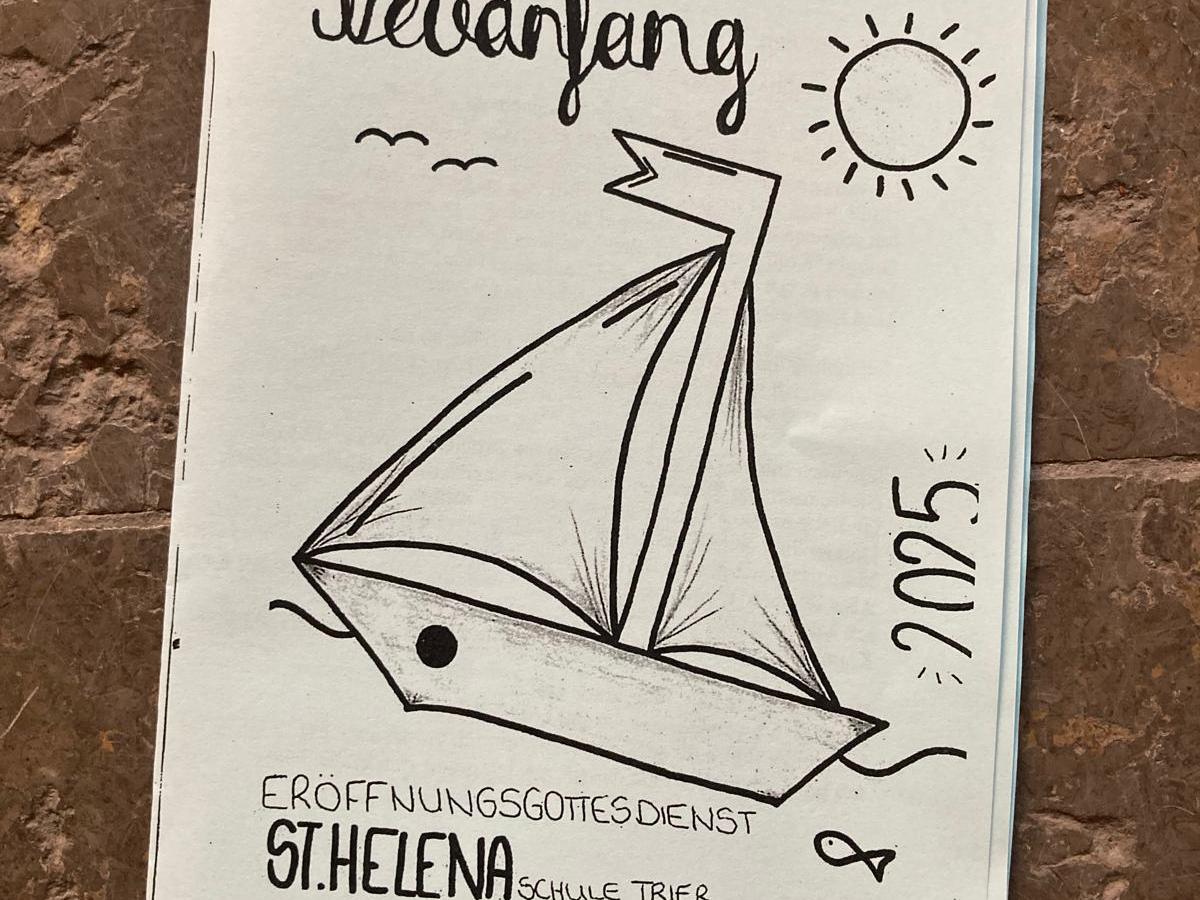 Neuanfang
2025
ERÖFFNUNGSGOTTESDIENST
ST. HELENA SCHULE TRIER